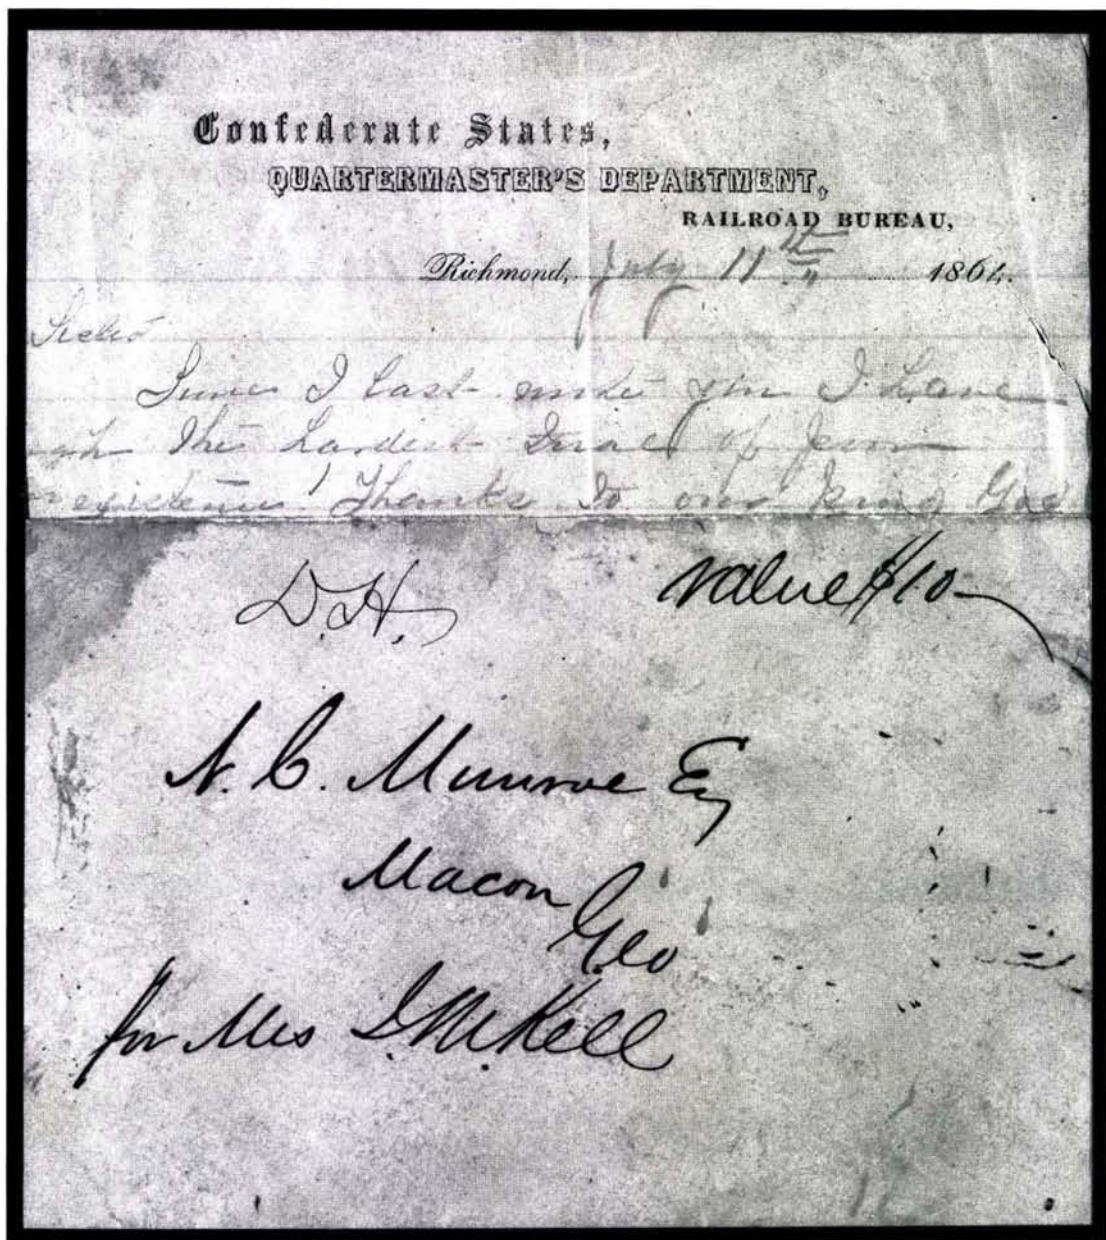 Confederate States,
QUARTERMASTER'S DEPARTMENT,
RAILROAD BUREAU,
Richmond, July 11th 1864.
I last you I have
the of
existence! Thanks to our God
D.H. value $10
N. C. Munroe Esq
Macon
Geo
for Mrs J. M. Kell